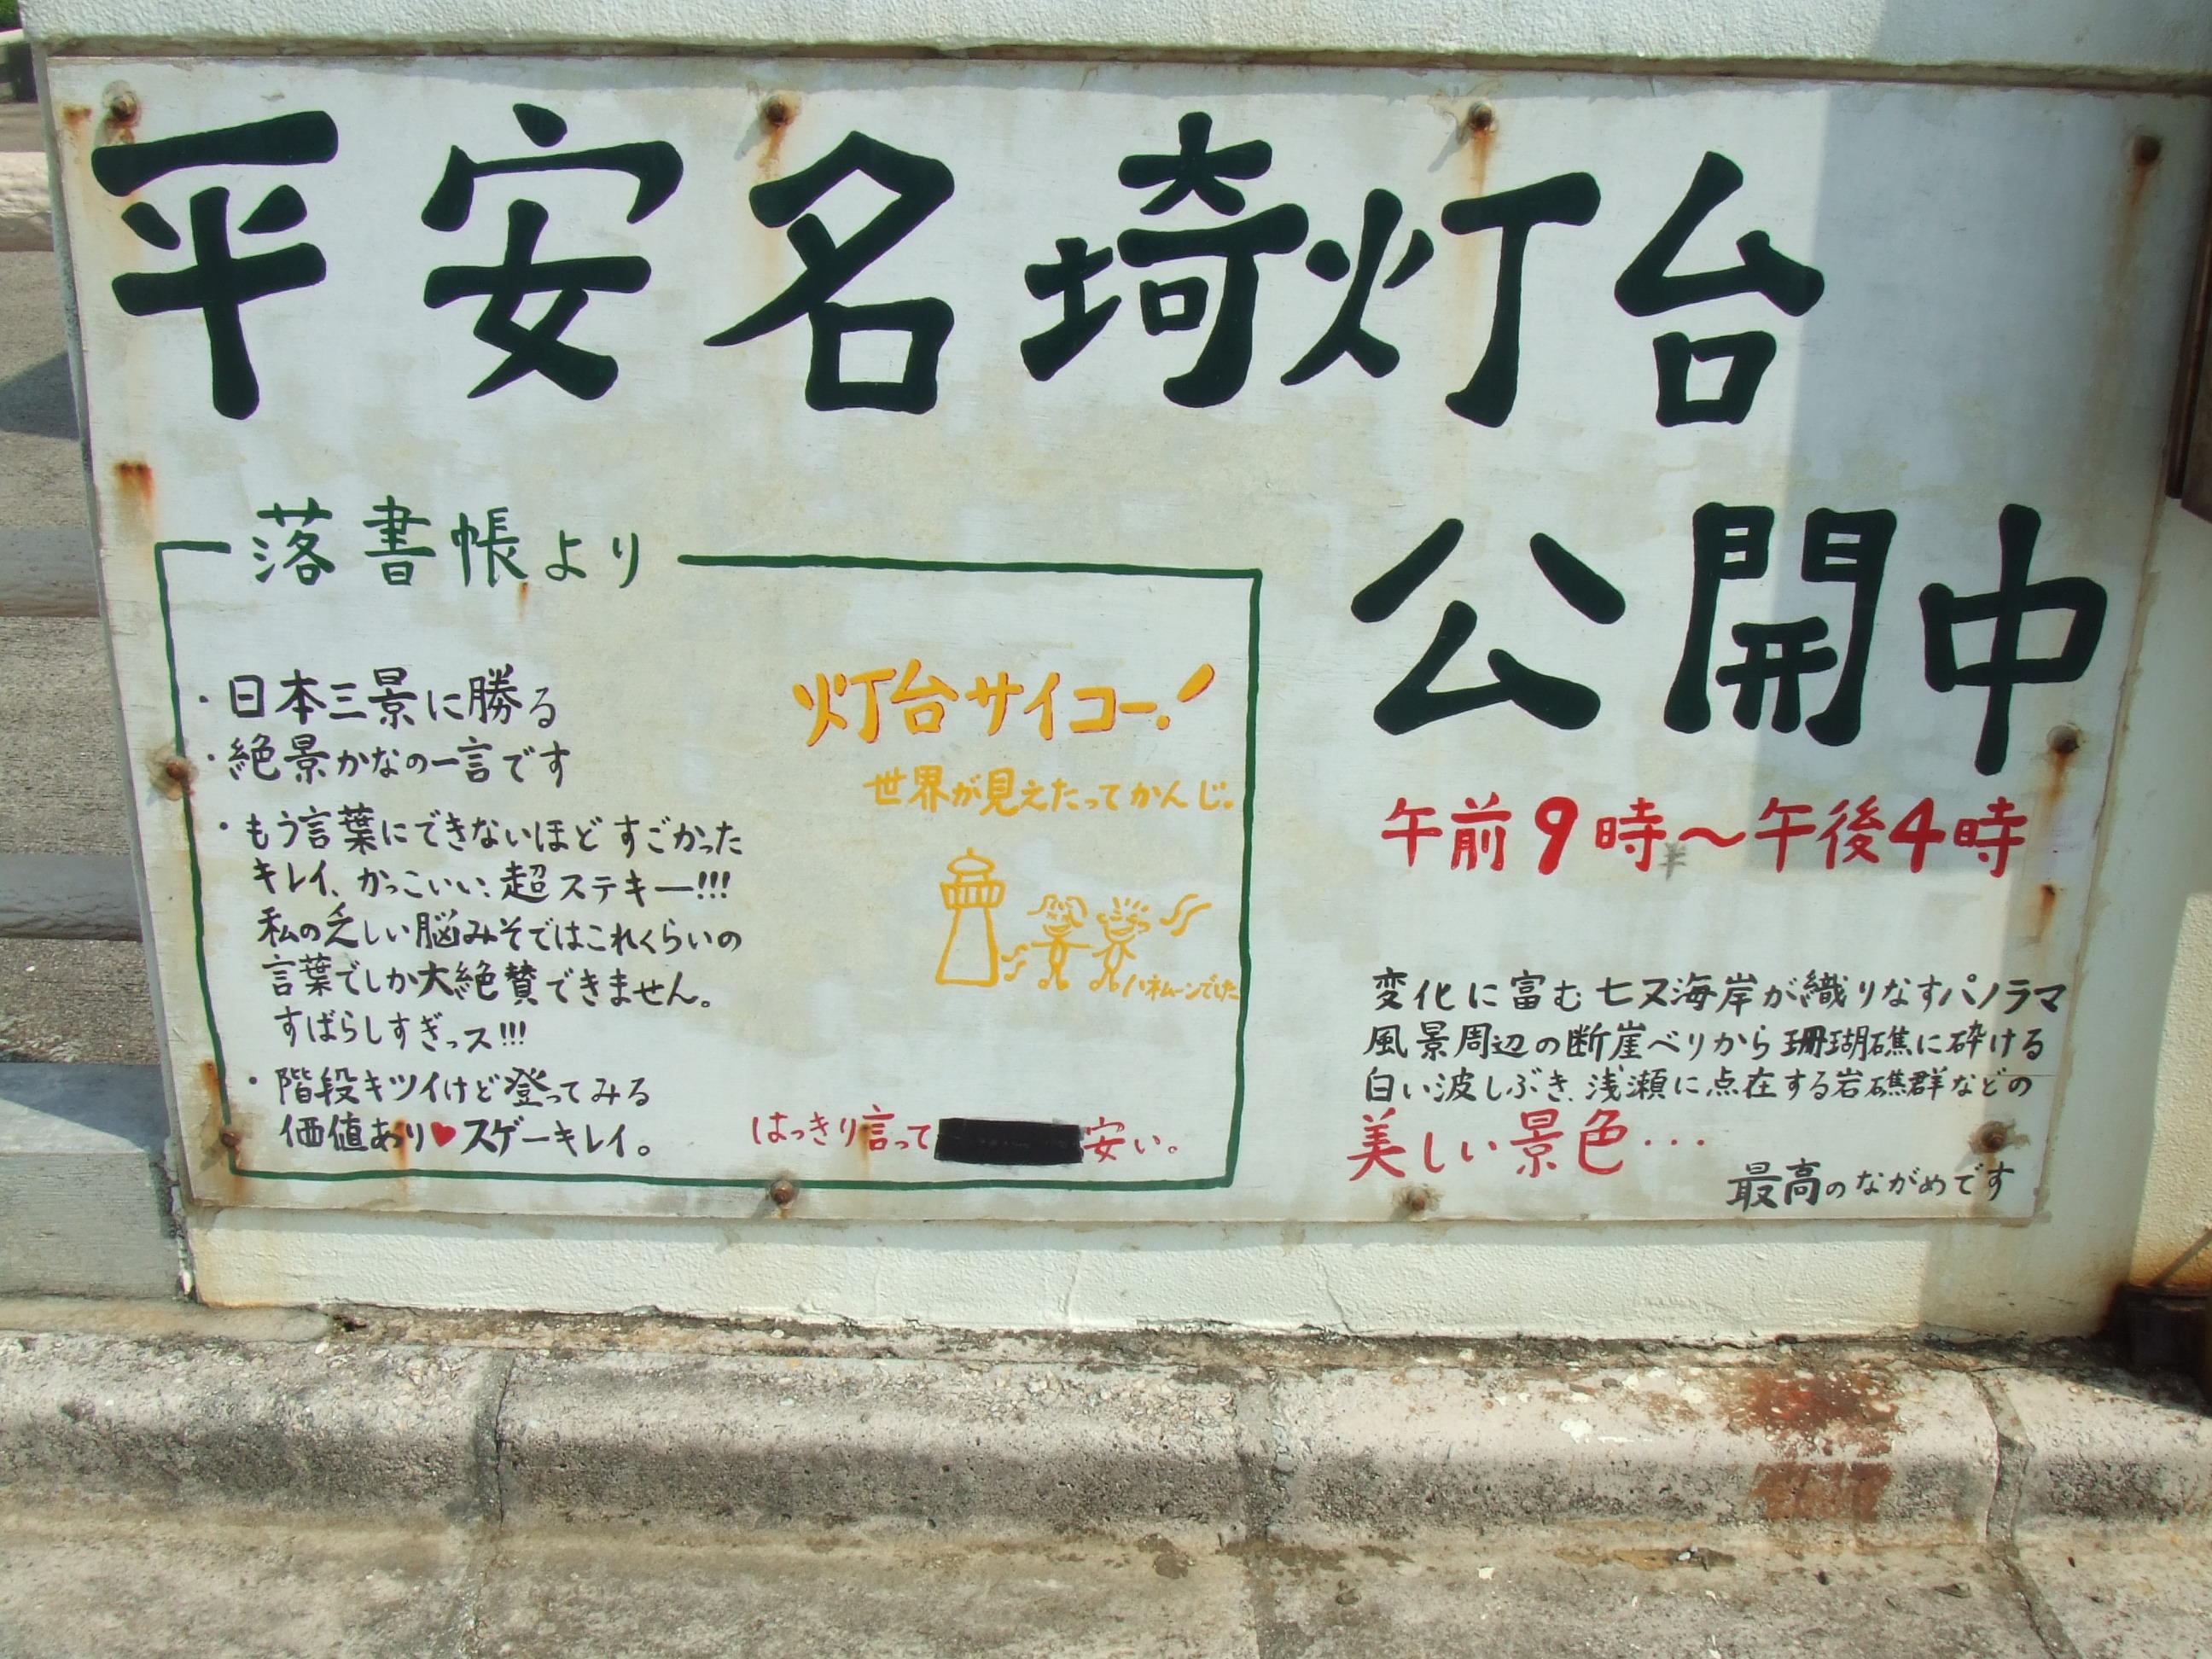 平安名埼灯台
公開中
午前9時〜午後4時
落書帳より
・日本三景に勝る
・絶景かなの一言です
・もう言葉にできないほどすごかった
キレイ、かっこいい、超ステキー!!!
私の乏しい脳みそではこれくらいの
言葉でしか大絶賛できません。
すばらしすぎっス!!!
・階段キツイけど登ってみる
価値あり♥スゲーキレイ。
灯台サイコー!
世界が見えたってかんじ。
ハネムーンでした
はっきり言って
安い。
変化に富む七又海岸が織りなすパノラマ
風景周辺の断崖べりから珊瑚礁に砕ける
白い波しぶき、浅瀬に点在する岩礁群などの
美しい景色…
最高のながめです